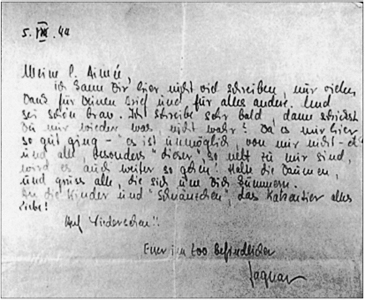 5. IX. 44
Meine l. Aimée,
ich kann Dir hier nicht viel schreiben, nur vielen
Dank für Deinen Brief und für alles andere. Und
sei schön brav. Ich schreibe sehr bald dann schickst
Du mir wieder was nicht wahr? Da es mir hier
so gut ging - es ist unmöglich, von mir nicht -
und alle, besonders dieser, so nett zu mir sind
wird es auch weiter so gehen! Halt die Daumen,
und grüss alle, die sich um Dich kümmern.
die Kinder und das alles
Liebe!
Auf Wiedersehen!!
Euer im Zoo befindlicher
Jaguar